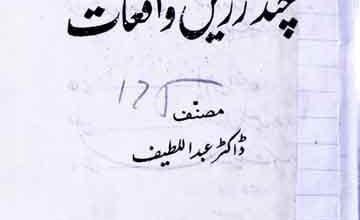 چند زریں واقعات
175
مصنّف
ڈاکٹر عبداللطیف